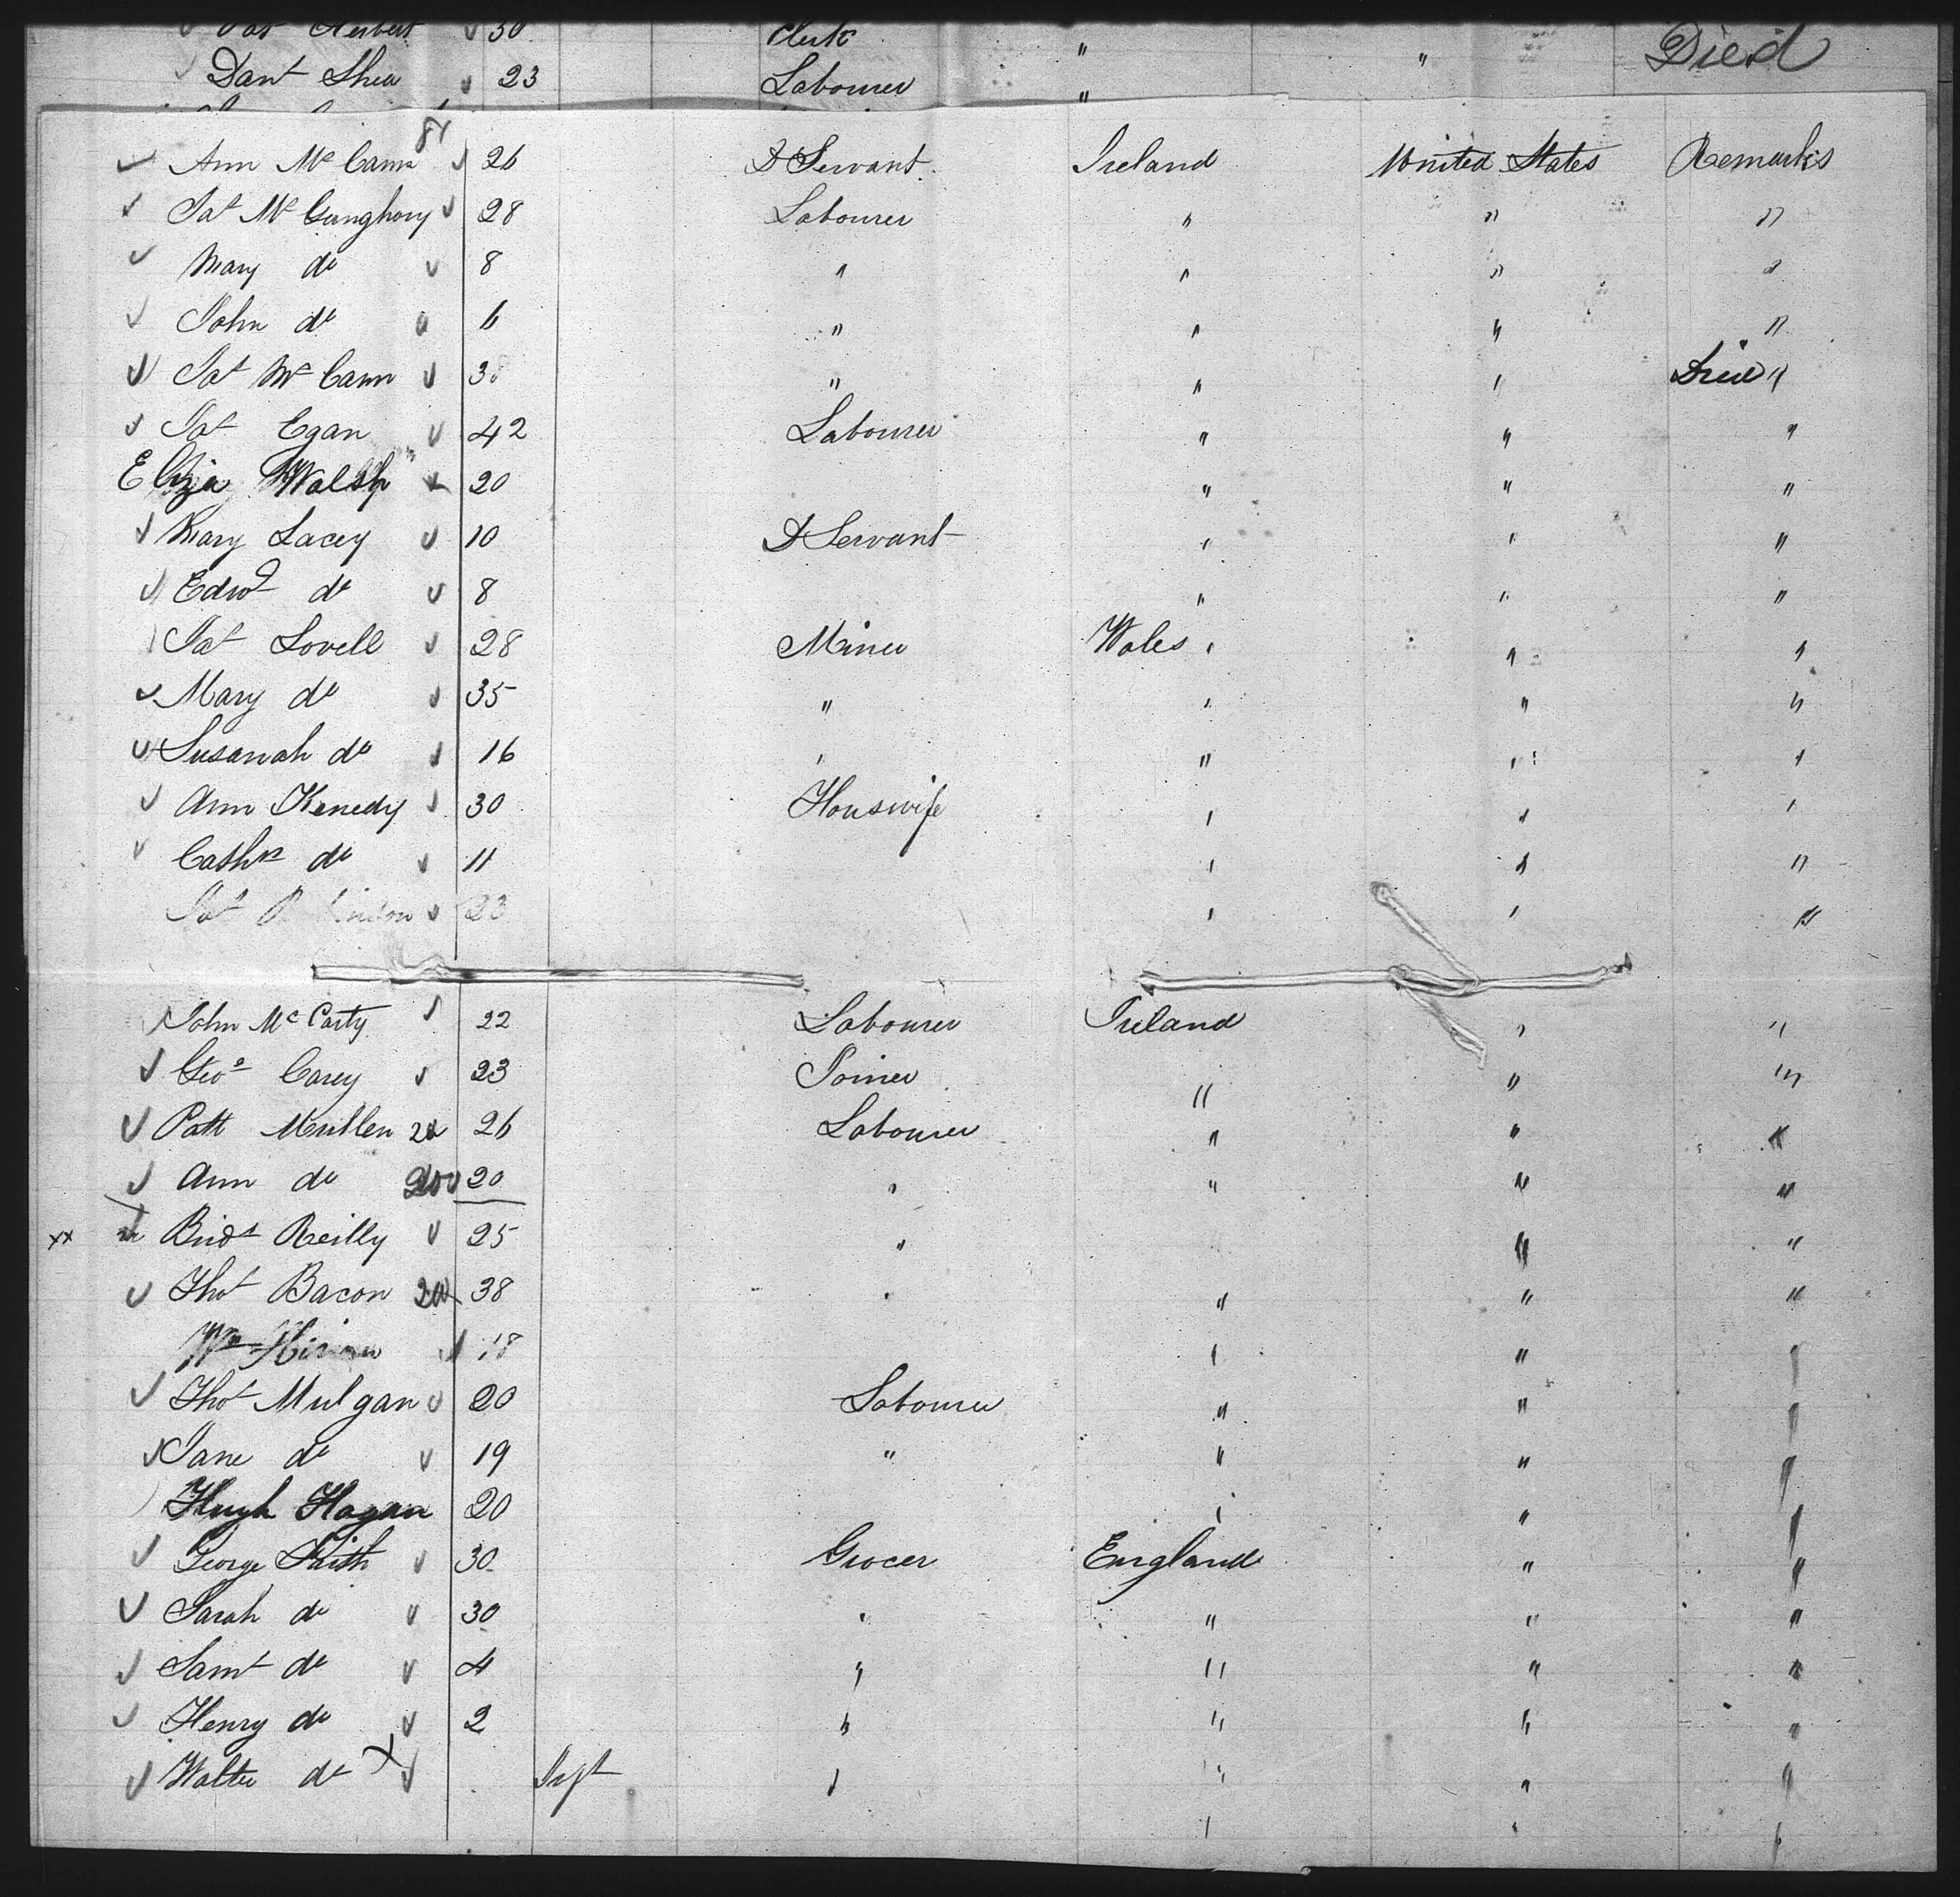 Herbert 30 Clerk " "
Danl Shea 23 Labourer " " Died
Ann McCann 26 D Servant Ireland United States Remarks
Jas McCunghory 28 Labourer " " "
Mary do 8 " " " "
John do 6 " " " "
Jas McCann 3 " " " Died "
Jas Egan 42 Labourer " " "
Eliza Walsh 20 " " "
Mary Lacey 10 D Servant " " "
Edwd do 8 " " "
Jas Lovell 28 Miner Wales " " "
Mary do 35 " " " "
Susanah do 16 " " " "
Ann Kenedy 30 Houswife " " "
Cathn do 11 " " "
Jas 23 " " "
John McCarty 22 Labourer Ireland " "
Geoe Carey 23 Joiner " " "
Patt Mullen 20 26 Labourer " " "
Ann do 20 20 " " " "
xx Bridt Reilly 25 " " "
Thos Bacon 20 38 " " " "
Wm 18 " " "
Thos Mulgan 20 Labourer " " "
Jane do 19 " " " "
Hugh Hagan 20 " " "
George Smith 30 Grocer England " "
Sarah do 30 " " " "
Saml do 4 " " " "
Henry do 2 " " " "
Walter do x Inft " " " "
" " "